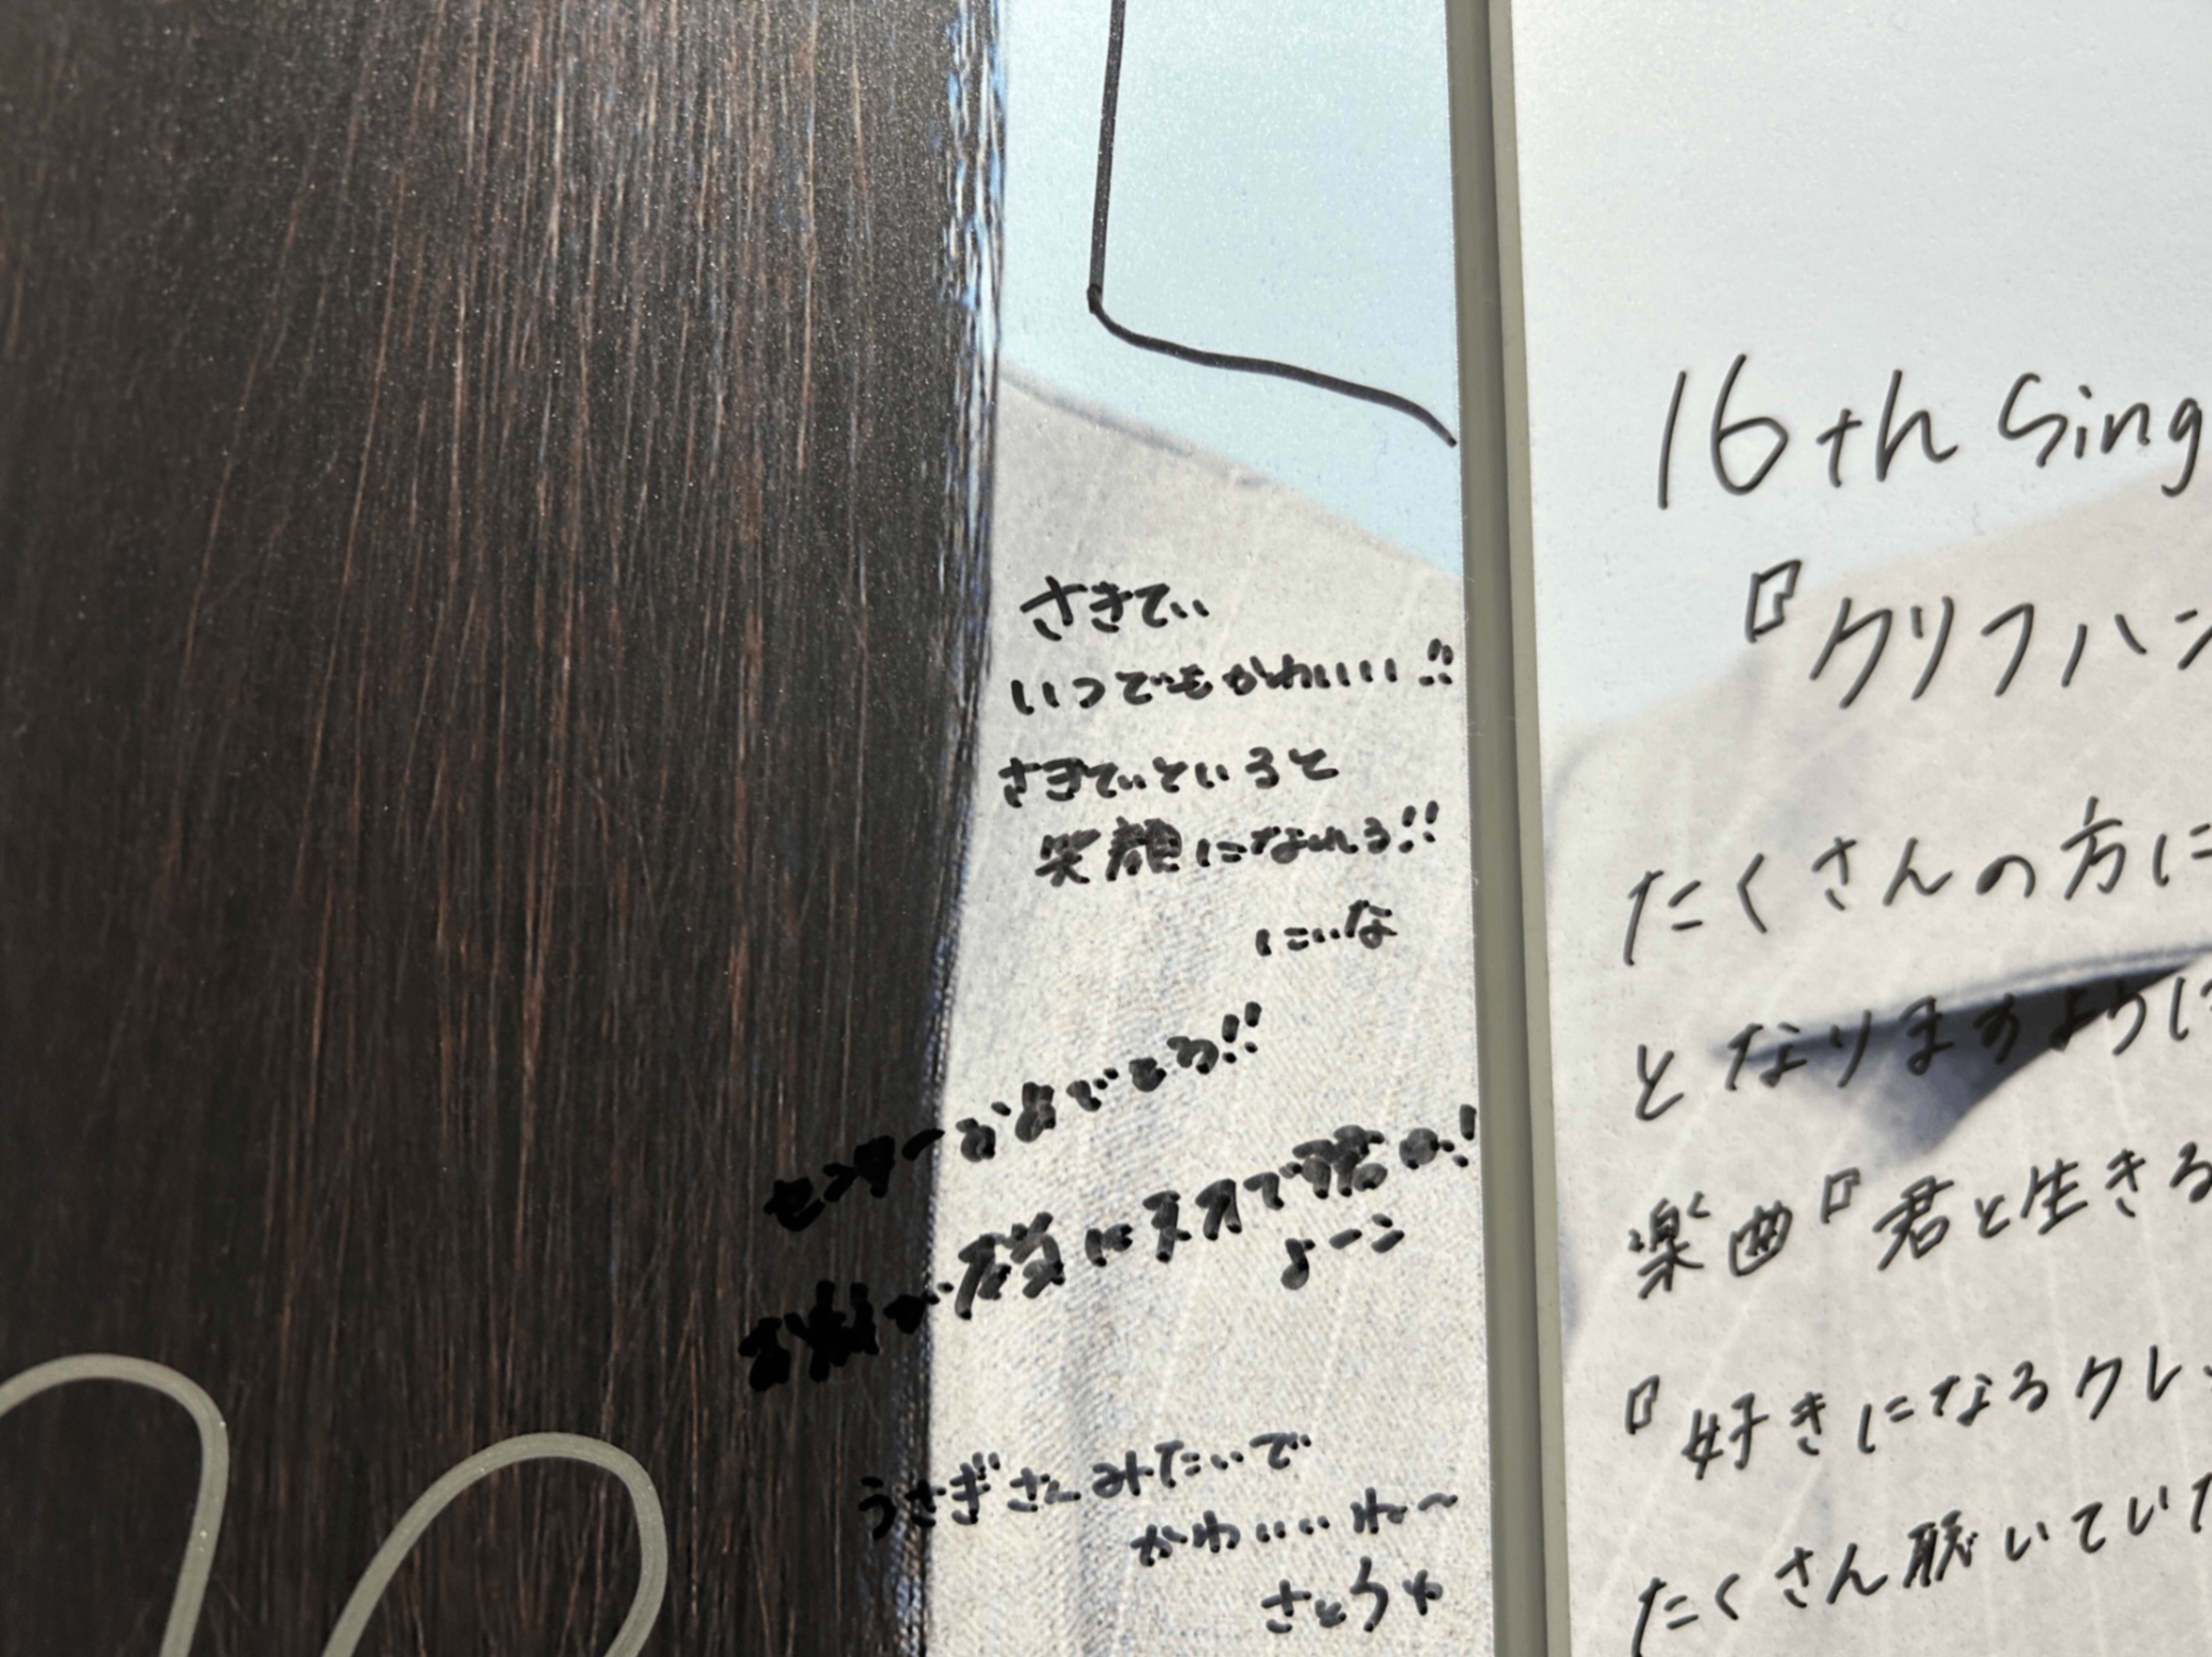 さきてぃ
いつでもかわいいい!!
さきてぃといると
笑顔になれる!!
にいな
センターおめでとう!!
お芝居が本当に天才で
よーン
うさぎさんみたいで
かわいいね〜
さとうゆ
16th Sing
『クリフハン
たくさんの方に
となりますように
楽曲『君と生きる
『好きになるクレッ
たくさん聴いていた